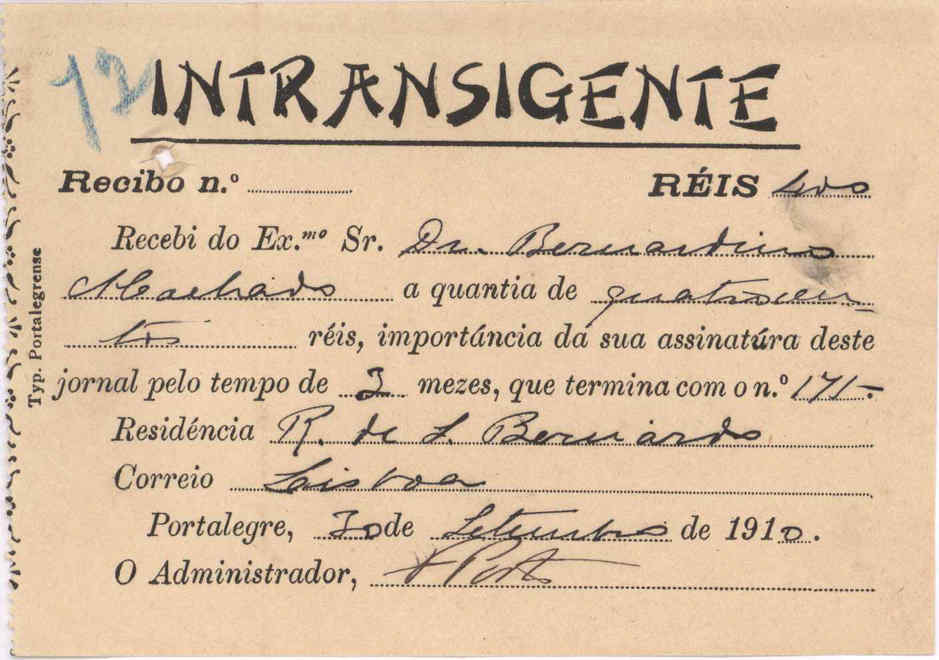 12
INTRANSIGENTE
Recibo n.º
RÉIS 400
Recebi do Ex.mo Sr. Dr. Bernardino
Machado a quantia de quatrocen-
tos réis, importáncia da sua assinatúra deste
jornal pelo tempo de 3 mezes, que termina com o n.º 171-.
Residéncia R. de S. Bernardo
Correio Lisboa
Portalegre, 30 de Setembro de 1910.
O Administrador,
Typ. Portalegrense